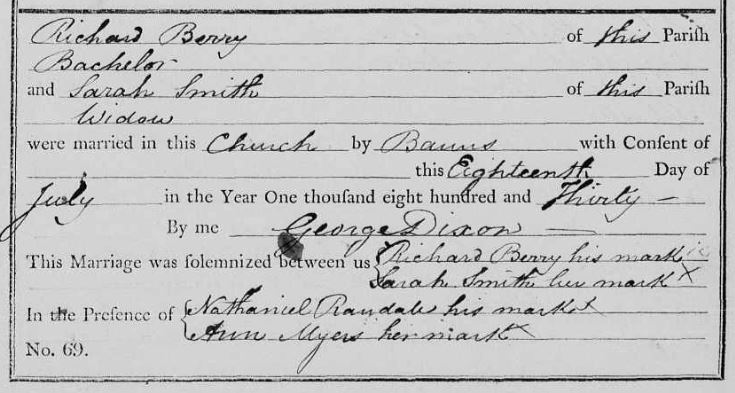 Richard Berry of this Pariſh
Bachelor
and Sarah Smith of this Pariſh
Widow
were married in this Church by Banns with Conſent of
this Eighteenth Day of
July in the Year One thouſand eight hundred and Thirty
By me George Dixon
This Marriage was ſolemnized between us Richard Berry his mark X
Sarah Smith her mark X
In the Preſence of Nathaniel Randale his mark X
Ann Myers her mark X
No. 69.